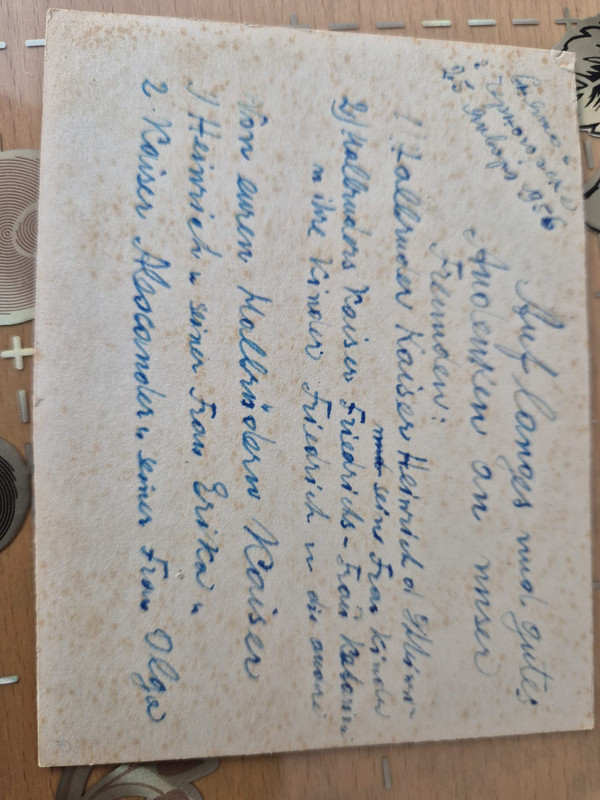 25 Января 1956
Auf langes und gutes
Andenken an unser
Freunden:
1) Halbruder Kaiser Heinrich d
seine Frau Kinder
2) Halbruders Kaiser Friedrichs-Frau
u ihre Kinder Friedrich u die
Von euren Halbrüdern Kaiser
1) Heinrich u seiner Frau Erika u
2. Kaiser Alexander u seiner Frau Olga